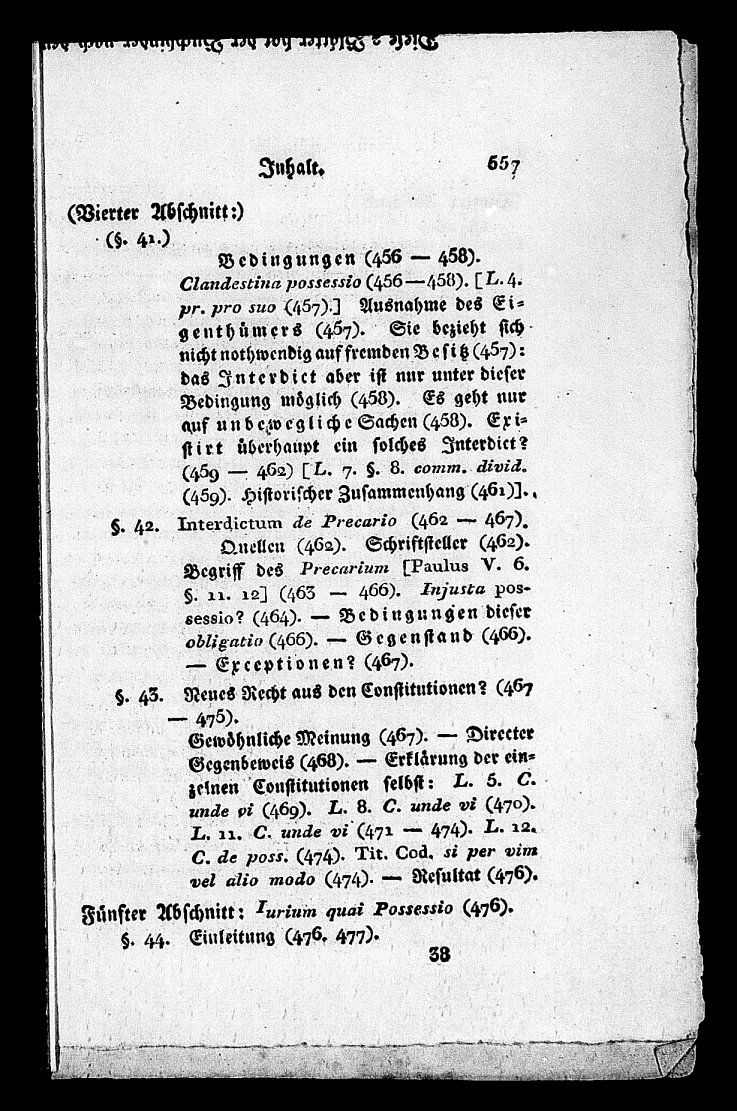 Diese 2 Blätter hat der Buchbinder nach dem
Inhalt. 557
(Vierter Abschnitt:)
(§. 41.)
Bedingungen (456 — 458).
Clandestina possessio (456—458). [L. 4.
pr. pro suo (457).] Ausnahme des Ei-
genthümers (457). Sie bezieht sich
nicht nothwendig auf fremden Besitz (457):
das Interdict aber ist nur unter dieser
Bedingung möglich (458). Es geht nur
auf unbewegliche Sachen (458). Exi-
stirt überhaupt ein solches Interdict?
(459 — 462) [L. 7. §. 8. comm. divid.
(459). Historischer Zusammenhang (461)].
§. 42. Interdictum de Precario (462 — 467).
Quellen (462). Schriftsteller (462).
Begriff des Precarium [Paulus V. 6.
§. 11. 12] (463 — 466). Injusta pos-
sessio? (464). — Bedingungen dieser
obligatio (466). — Gegenstand (466).
— Exceptionen? (467).
§. 43. Neues Recht aus den Constitutionen? (467
— 475).
Gewöhnliche Meinung (467). — Directer
Gegenbeweis (468). — Erklärung der ein-
zelnen Constitutionen selbst: L. 5. C.
unde vi (469). L. 8. C. unde vi (470).
L. 11. C. unde vi (471 — 474). L. 12.
C. de poss. (474). Tit. Cod. si per vim
vel alio modo (474). — Resultat (476).
Fünfter Abschnitt: Iurium quai Possessio (476).
§. 44. Einleitung (476. 477).
38